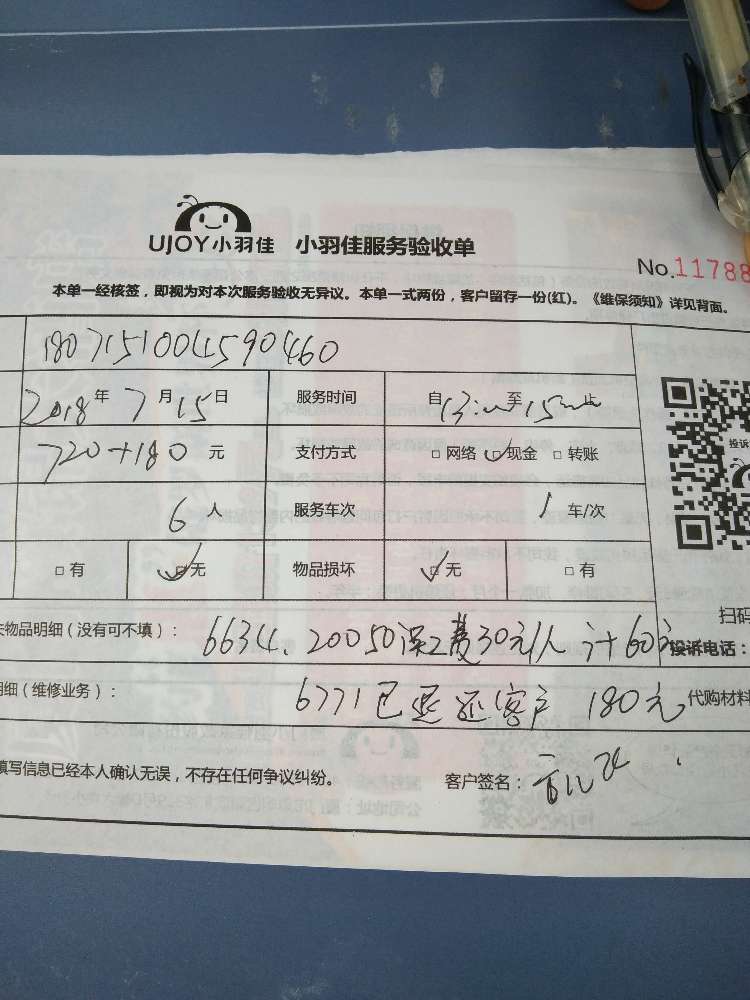 UJOY小羽佳 小羽佳服务验收单
No.11788
本单一经核签，即视为对本次服务验收无异议。本单一式两份，客户留存一份(红)。《维保须知》详见背面。
1807151004590460
2018年7月15日 服务时间 自13:00至15:00止
720+180元 支付方式 网络 现金 转账
投诉
6人 服务车次 1车/次
有 无 物品损坏 无 有
扫码
物品明细（没有可不填）： 6634、20050 30元/人 计60元 投诉电话：
明细（维修业务）： 6771已退还客户180元 代购材料
填写信息已经本人确认无误，不存在任何争议纠纷。 客户签名：